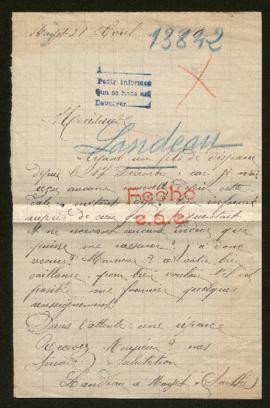 Mayet 21 Avril
13842
A
Pedir informes
Que se hace así
Devolver
Monsieur
Landeau
Ayant un fils de disparu
depuis le 17 Décembre car je n'ai
reçu aucune nouvelle depuis cette
date
auprès de ceux
Fecho
e.a.e.
Ne recevant aucun
puisse me rassurer j'ai donc
recours Monsieur à votre bien
veillance pour bien vouloir s'il est
possible me fournir quelques
renseignements
Dans l'attente d'une réponse
Recevez Monsieur mes
sincères salutations
Landeau à Mayet (Sarthe)